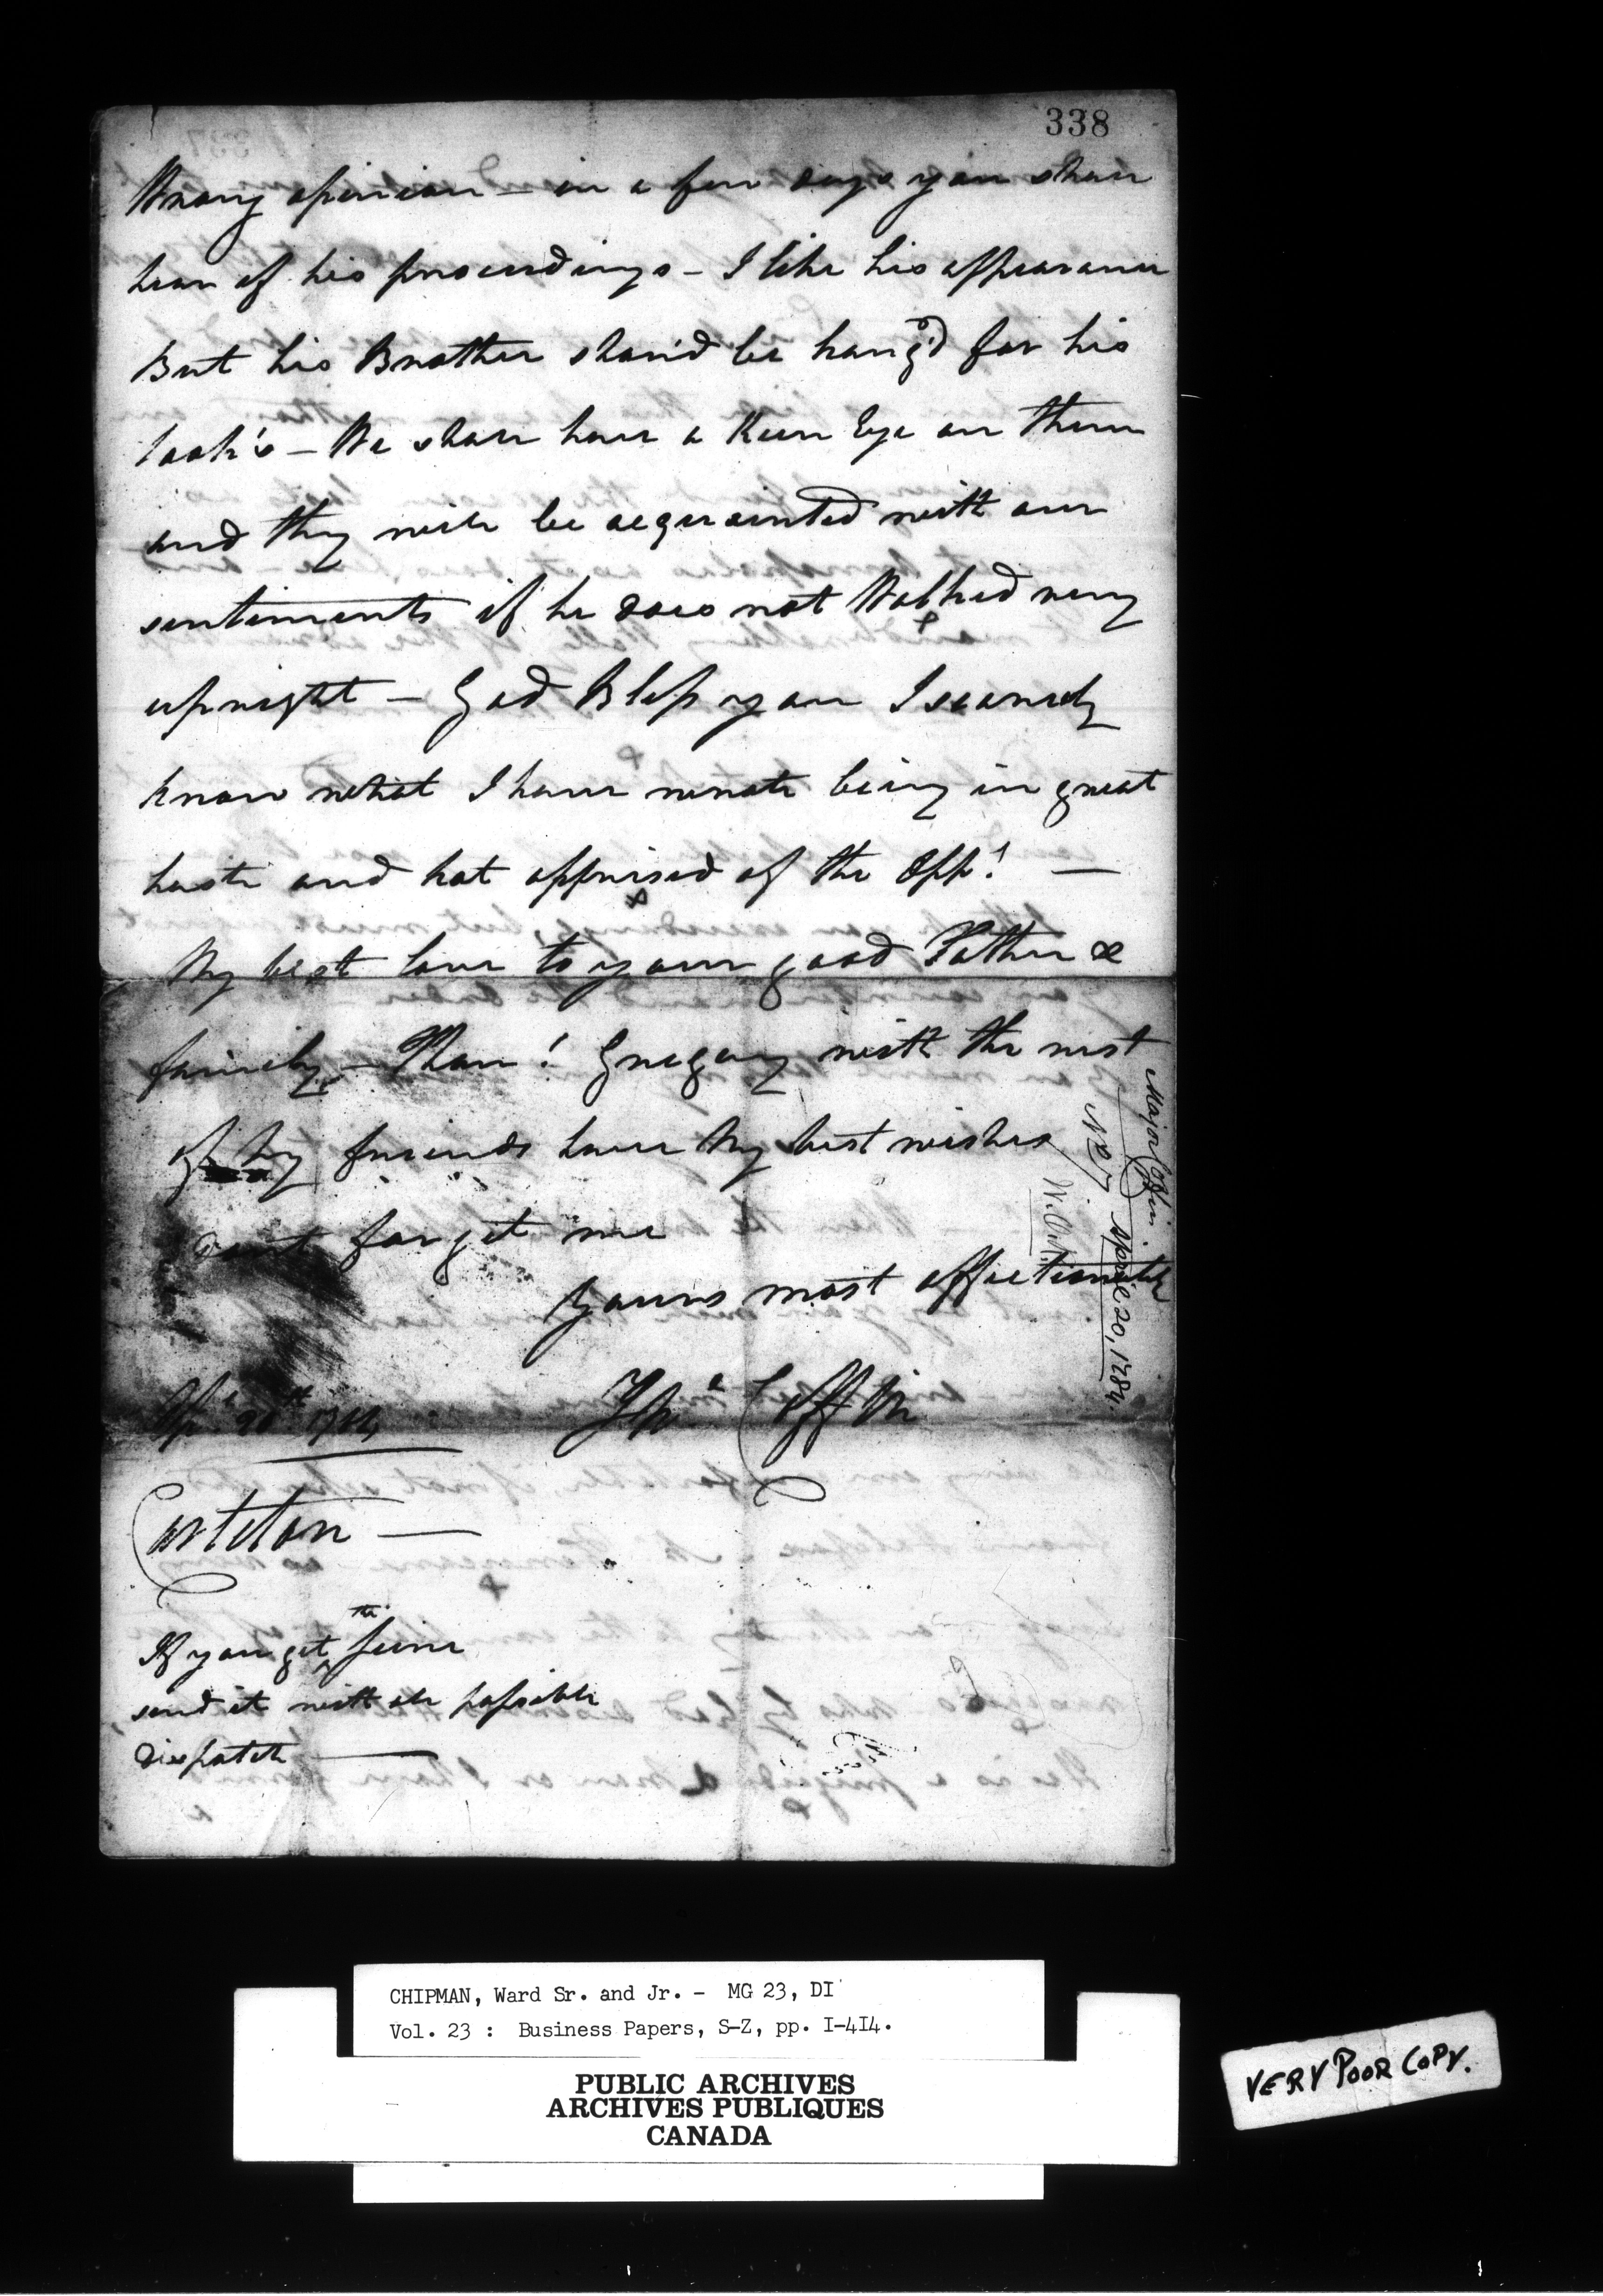 338
Wrong opinion – in a few days you shall
hear of his proceedings – I like his appearance
But his Brother shou'd be hang'd for his
look's – We shall have a Keen Eye on them
and they will be acquainted with our
sentiments if he does not Walked very
upright – God Bless you I scarcely
know what I have wrote being in great
haste and not apprised of the Opp!
My best love to your good Father &
family – Gregory with the rest
of My friends have My best wishes
dont forget me
Yours most affectionately
Coffin
20th 1784
Carleton —
If you get the
send it with all possible
dispatch —
Major Coffin
April 20, 1784
CHIPMAN, Ward Sr. and Jr. - MG 23, DI
Vol. 23 : Business Papers, S-Z, pp. I-4I4.
PUBLIC ARCHIVES
ARCHIVES PUBLIQUES
CANADA
VERY POOR COPY.